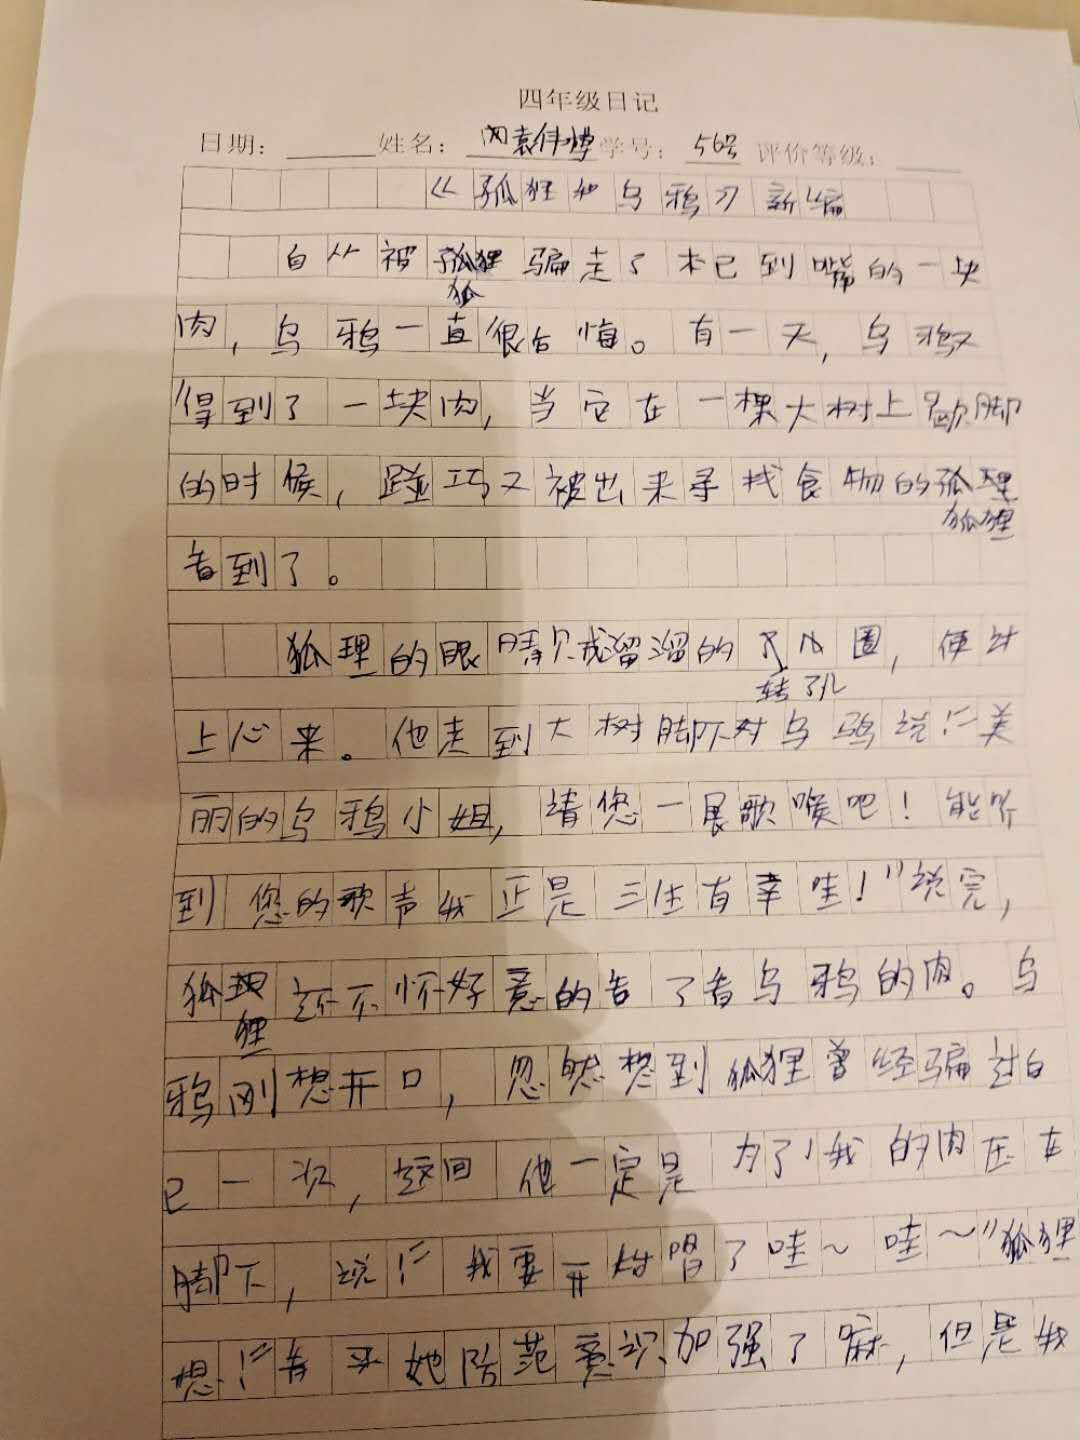 四年级日记
日期： 姓名： 袁伟博 学号： 56号 评价等级：
《狐狸和乌鸦》新编
自从被狐狸骗走了本已到嘴的一块
狐
肉，乌鸦一直很后悔。有一天，乌鸦又
得到了一块肉，当它在一棵大树上歇脚
的时候，碰巧又被出来寻找食物的狐狸
狐狸
看到了。
狐理的眼睛贼溜溜的 圈，使计
转了几
上心来。他走到大树脚下对乌鸦说：“美
丽的乌鸦小姐，请您一展歌喉吧！能听
到您的歌声我正是三生有幸哇！”说完，
狐理还不怀好意的看了看乌鸦的肉。乌
狸
鸦刚想开口，忽然想到狐狸曾经骗过自
己一次，这回他一定是为了我的肉压在
脚下，说：“我要开始唱了哇～哇～”狐狸
想：“看来她防范意识加强了嘛，但是我